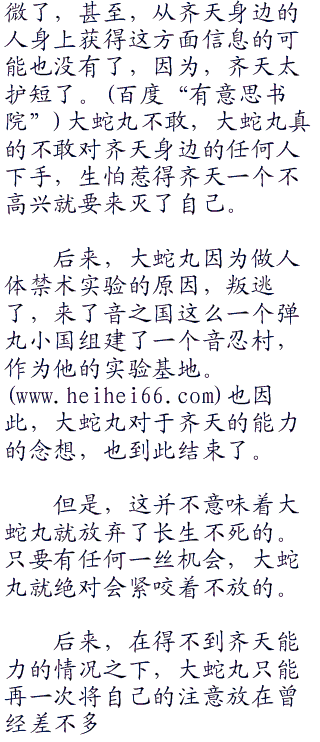 微了，甚至，从齐天身边的
人身上获得这方面信息的可
能也没有了，因为，齐天太
护短了。(百度“有意思书
院”)大蛇丸不敢，大蛇丸真
的不敢对齐天身边的任何人
下手，生怕惹得齐天一个不
高兴就要来灭了自己。
后来，大蛇丸因为做人
体禁术实验的原因，叛逃
了，来了音之国这么一个弹
丸小国组建了一个音忍村，
作为他的实验基地。
(www.heihei66.com)也因
此，大蛇丸对于齐天的能力
的念想，也到此结束了。
但是，这并不意味着大
蛇丸就放弃了长生不死的。
只要有任何一丝机会，大蛇
丸就绝对会紧咬着不放的。
后来，在得不到齐天能
力的情况之下，大蛇丸只能
再一次将自己的注意放在曾
经差不多